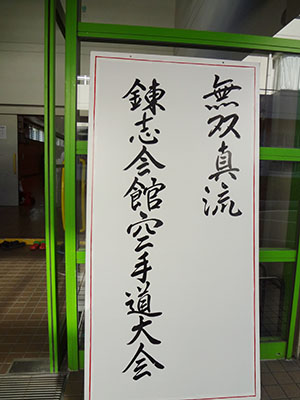 無双真流
錬志会館空手道大会